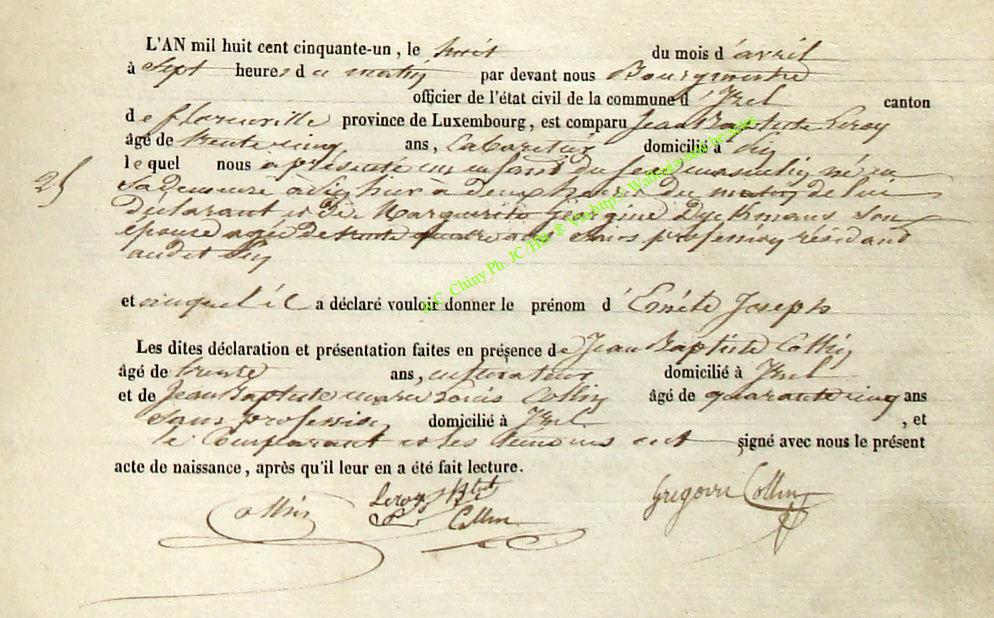 L'AN mil huit cent cinquante-un, le huit du mois d'avril
à Sept heures du matin par devant nous Bourgmestre
officier de l'état civil de la commune d'Izel canton
de florenville province de Luxembourg, est comparu Jean Baptiste Leroy
âgé de trente cinq ans, Cabaretier domicilié à
lequel nous a présenté un enfant du sexe masculin né en
25
Sa demeure hier a deux heures du matin de lui
déclarant et de Marguerite Georgine Dyckmans Son
épouse agée de trente quatre ans Sans profession résidant
audit
et auquel il a déclaré vouloir donner le prénom d'Emile Joseph
Les dites déclaration et présentation faites en présence de Jean Baptiste Collin
âgé de trente ans, domicilié à Izel
et de Jean Baptiste marie Louis Collin âgé de quarante cinq ans
Sans profession domicilié à Izel, et
le Comparant et les témoins ont signé avec nous le présent
acte de naissance, après qu'il leur en a été fait lecture.
Collin Leroy JBte Collin Grégoire Collin